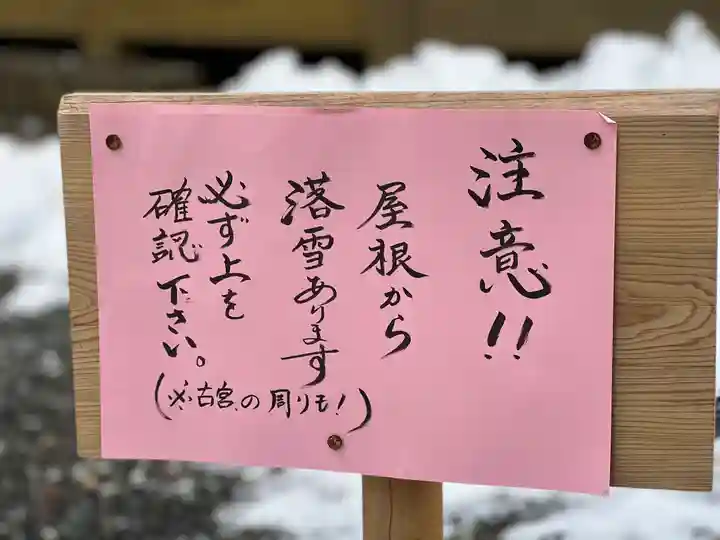 注意!!
屋根から
落雪あります
必ず上を
確認下さい。
(※古宮の周りも!)